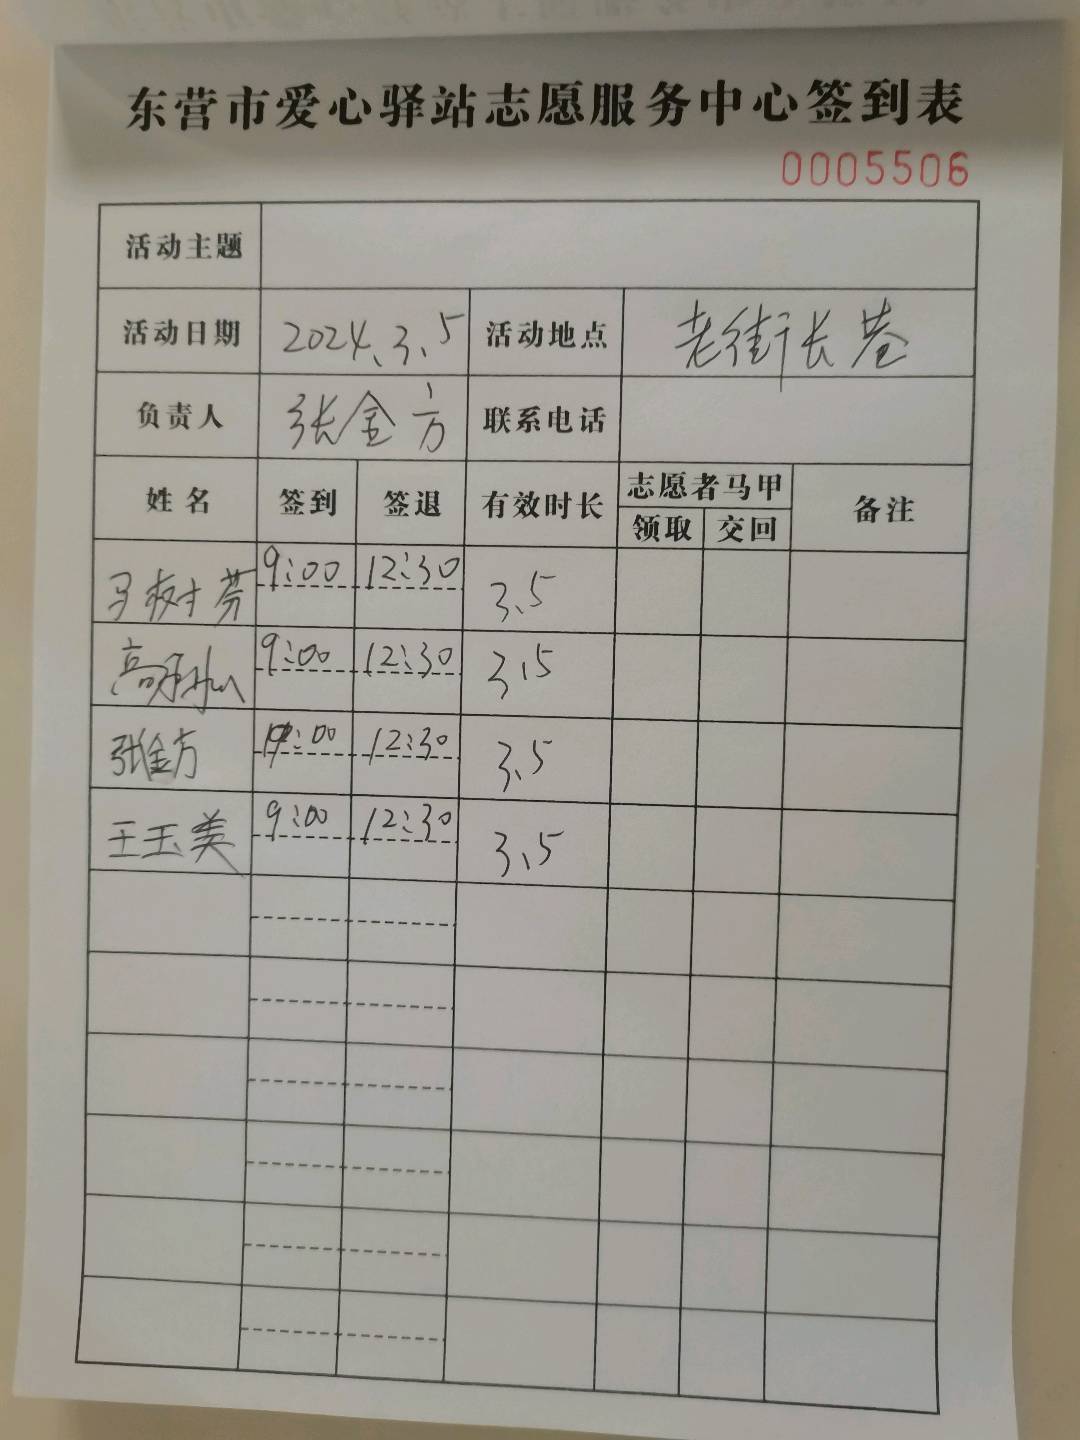 东营市爱心驿站志愿服务中心签到表
0005506
活动主题
活动日期 2024.3.5 活动地点 老街长巷
负责人 张金方 联系电话
姓名 签到 签退 有效时长 志愿者马甲 备注
领取 交回
马树芬 9:00 12:30 3.5
高 9:00 12:30 3.5
张金方 :00 12:30 3.5
王玉美 9:00 12:30 3.5